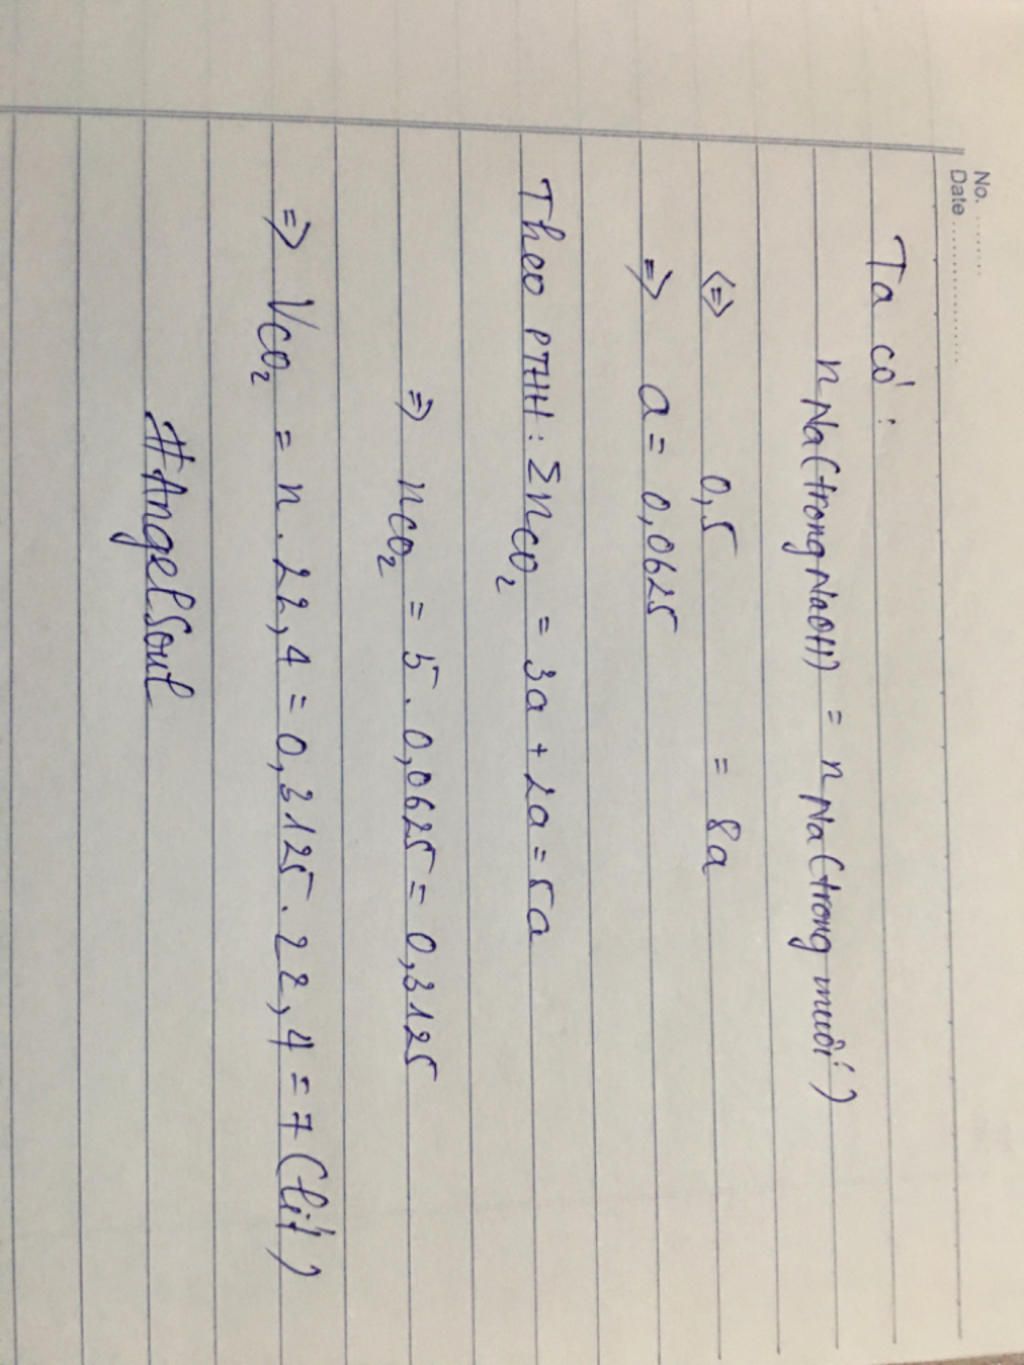 No. ........
Date ................
Ta có :
n Na(trong NaOH) = n Na(trong muối)
<=> 0,5 = 8a
=> a = 0,0625
Theo PTHH : Σn CO₂ = 3a + 2a = 5a
=> n CO₂ = 5 . 0,0625 = 0,3125
=> V CO₂ = n . 22,4 = 0,3125 . 22,4 = 7 (lít)
#AngelSoul